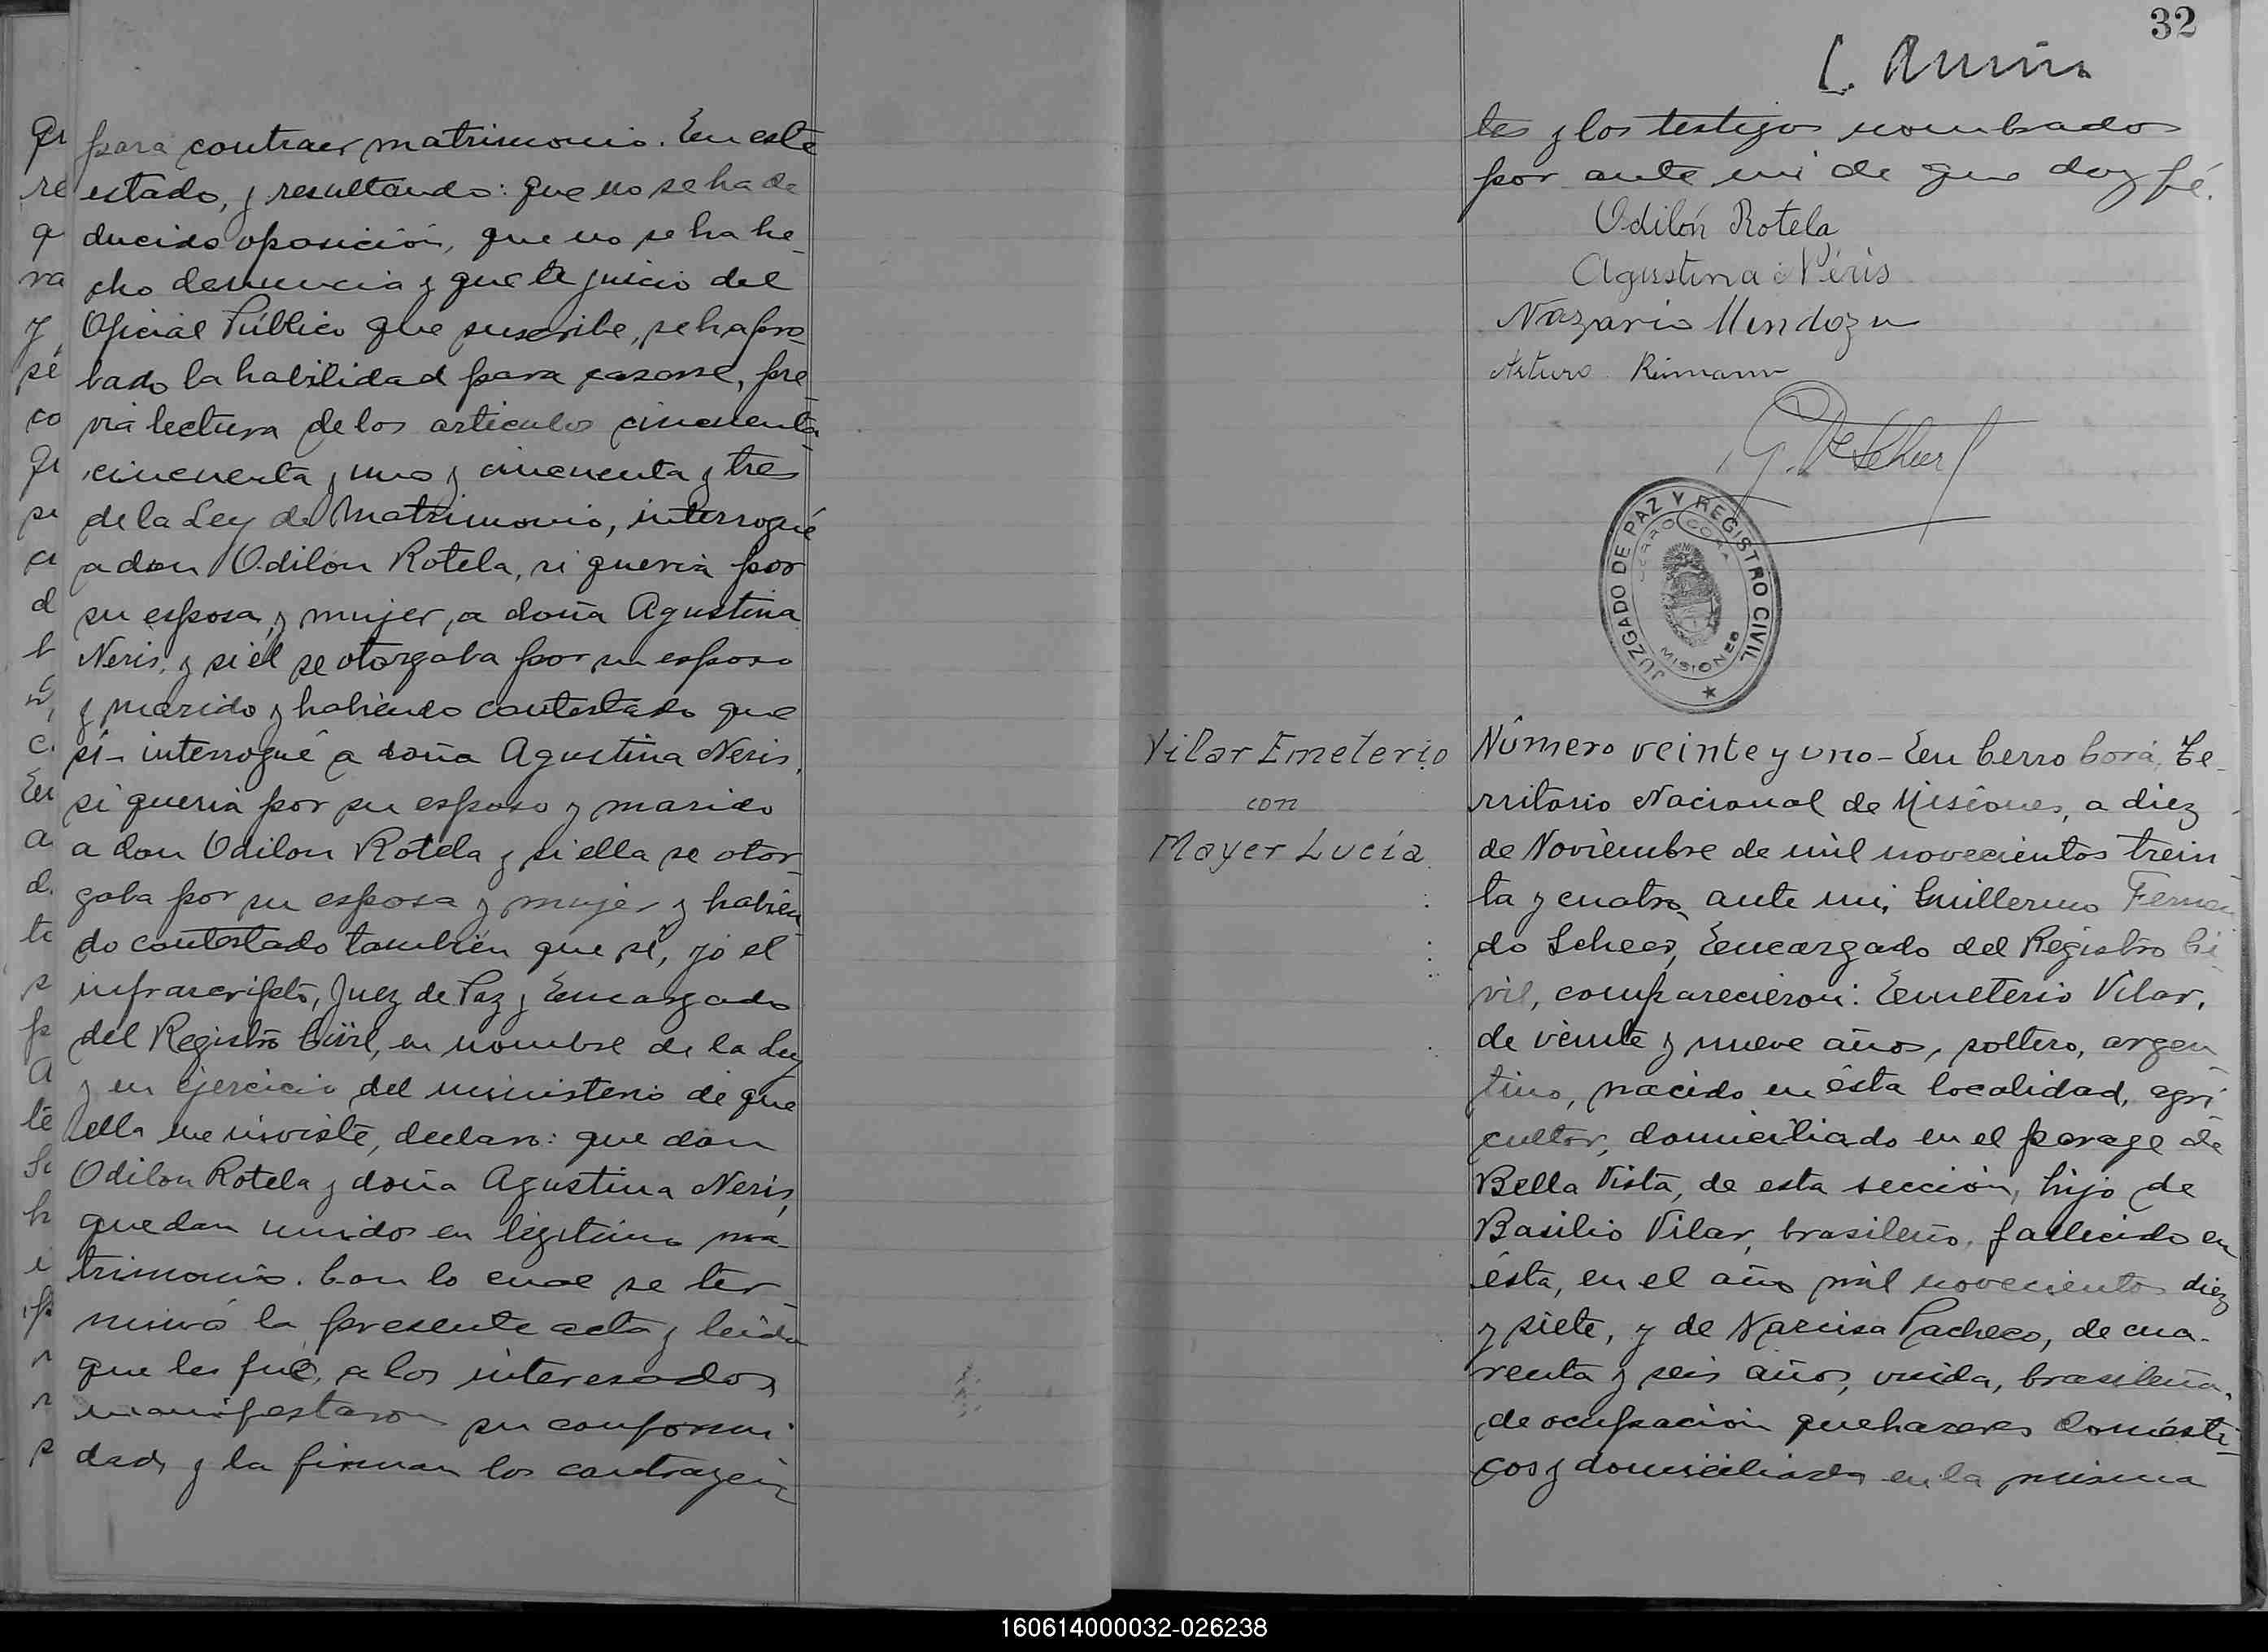 para contraer matrimonio. En este
estado, y resultando: que no se ha de
ducido oposición, que no se ha he-
cho denuncia y que a juicio del
Oficial Público que suscribe, se ha pro-
bado la habilidad para casarse, pre
via lectura de los articulos cincuenta
cincuenta y uno y cincuenta y tres
de la Ley de Matrimonio, interrogué
a don Odilón Rotela, si queria por
su esposa y mujer, a doña Agustina
Neris, y si él se otorgaba por su esposo
y marido y habiendo contestado que
sí- interrogué a doña Agustina Neris,
si queria por su esposo y marido
a don Odilon Rotela y si ella se otor-
gaba por su esposa y mujer y habien
do contestado también que sí, yo el
infrascripto, Juez de Paz y Encargado
del Registro Civil, en nombre de la Ley
y en ejercicio del ministerio de que
ella me inviste, declaro: que don
Odilon Rotela y doña Agustina Neris,
quedan unidos en legitimo ma-
trimonio. Con lo cual se ter-
minó la presente acta y leida
que les fué, a los interesados,
manifestaron su conformi
dad, y la firman los contrayen
32
tes y los testigos nombrados
por ante mi de que doy fé.
Odilón Rotela
Agustina Neris
Nazario Mendoza
Arturo Rinmann
JUZGADO DE PAZ Y REGISTRO CIVIL
CERRO CORA
MISIONES
Vilar Emeterio
con
Mayer Lucía
Número veinte y uno- En Cerro Corá, Te-
rritorio Nacional de Misiones, a diez
de Noviembre de mil novecientos trein
ta y cuatro, ante mi, Guillermo Fernan
do Scheer, Encargado del Registro Ci
vil, comparecieron: Emeterio Vilar,
de veinte y nueve años, soltero, argen
tino, nacido en ésta localidad, agri
cultor, domiciliado en el parage de
Bella Vista, de esta sección, hijo de
Basilio Vilar, brasileño, fallecido en
ésta, en el año mil novecientos diez
y siete, y de Narcisa Pacheco, de cua-
renta y seis años, viuda, brasileña,
de ocupación quehazeres domésti-
cos y domiciliada en la misma
160614000032-026238